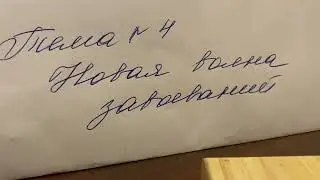 Тема № 4
Новая волна
завоеваний